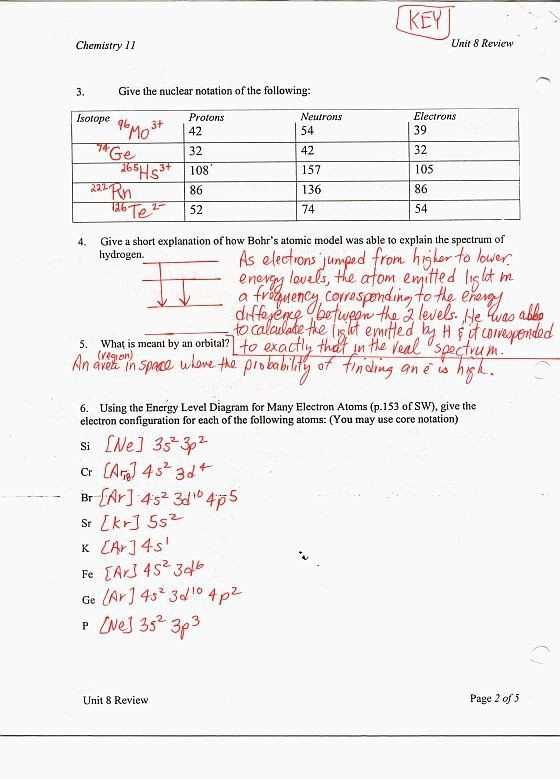 KEY
Chemistry 11 Unit 8 Review
3. Give the nuclear notation of the following:
Isotope Protons Neutrons Electrons
96Mo3+ 42 54 39
74Ge 32 42 32
265Hs3+ 108 157 105
222Rn 86 136 86
126Te2- 52 74 54
4. Give a short explanation of how Bohr's atomic model was able to explain the spectrum of
hydrogen.
As electrons jumped from higher to lower
energy levels, the atom emitted light in
a frequency corresponding to the energy
difference between the 2 levels. He was able
to calculate the light emitted by H & it corresponded
to exactly that in the real spectrum.
5. What is meant by an orbital?
(region)
An area in space where the probability of finding an e- is high.
6. Using the Energy Level Diagram for Many Electron Atoms (p.153 of SW), give the
electron configuration for each of the following atoms: (You may use core notation)
Si [Ne] 3s2 3p2
Cr [Ar] 4s2 3d4
Br [Ar] 4s2 3d10 4p5
Sr [Kr] 5s2
K [Ar] 4s1
Fe [Ar] 4s2 3d6
Ge [Ar] 4s2 3d10 4p2
P [Ne] 3s2 3p3
Unit 8 Review Page 2 of 5